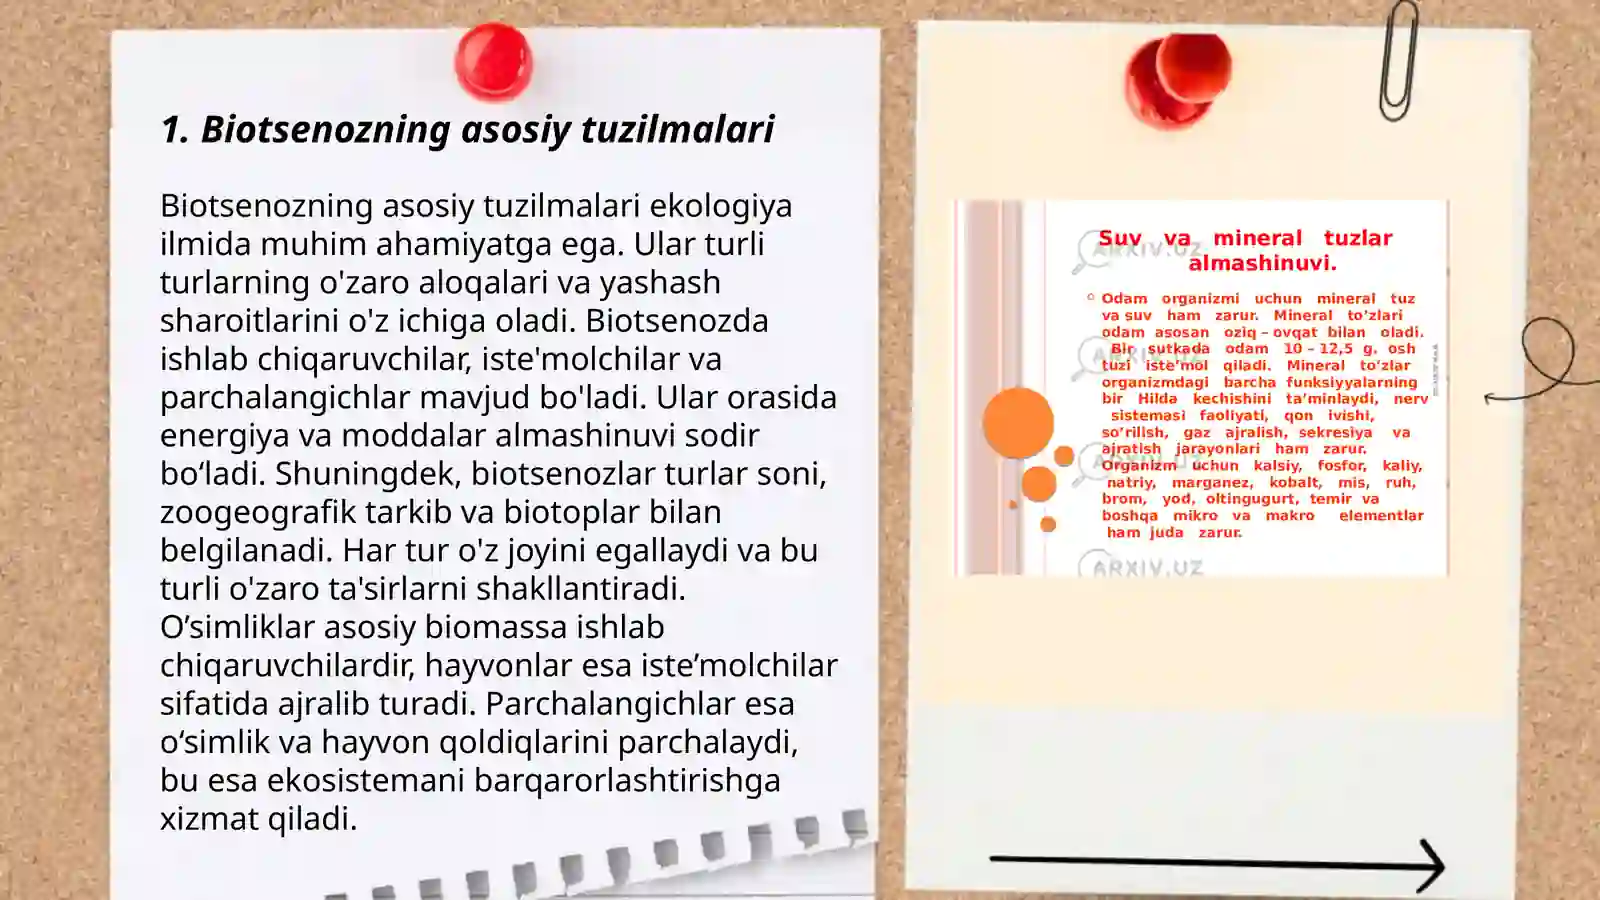 1. Biotsenozning asosiy tuzilmalari
Biotsenozning asosiy tuzilmalari ekologiya
ilmida muhim ahamiyatga ega. Ular turli
turlarning o'zaro aloqalari va yashash
sharoitlarini o'z ichiga oladi. Biotsenozda
ishlab chiqaruvchilar, iste'molchilar va
parchalangichlar mavjud bo'ladi. Ular orasida
energiya va moddalar almashinuvi sodir
bo‘ladi. Shuningdek, biotsenozlar turlar soni,
zoogeografik tarkib va biotoplar bilan
belgilanadi. Har tur o'z joyini egallaydi va bu
turli o'zaro ta'sirlarni shakllantiradi.
O’simliklar asosiy biomassa ishlab
chiqaruvchilardir, hayvonlar esa iste’molchilar
sifatida ajralib turadi. Parchalangichlar esa
o‘simlik va hayvon qoldiqlarini parchalaydi,
bu esa ekosistemani barqarorlashtirishga
xizmat qiladi.
Suv va mineral tuzlar
almashinuvi.
Odam organizmi uchun mineral tuz
va suv ham zarur. Mineral to’zlari
odam asosan oziq – ovqat bilan oladi.
Bir sutkada odam 10 – 12,5 g. osh
tuzi iste’mol qiladi. Mineral to’zlar
organizmdagi barcha funksiyyalarning
bir Hilda kechishini ta’minlaydi, nerv
sistemasi faoliyati, qon ivishi,
so’rilish, gaz ajralish, sekresiya va
ajratish jarayonlari ham zarur.
Organizm uchun kalsiy, fosfor, kaliy,
natriy, marganez, kobalt, mis, ruh,
brom, yod, oltingugurt, temir va
boshqa mikro va makro elementlar
ham juda zarur.
ARXIV.UZ
ARXIV.UZ
ARXIV.UZ
ARXIV.UZ